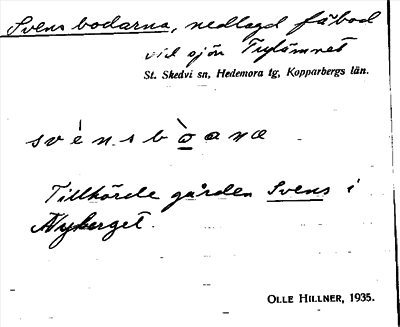 Svensbodarna, nedlagd fäbod
vid sjön
St. Skedvi sn, Hedemora tg, Kopparbergs län.
svènsbòana
Tillhörde gården Svens i
Nyberget.
OLLE HILLNER, 1935.